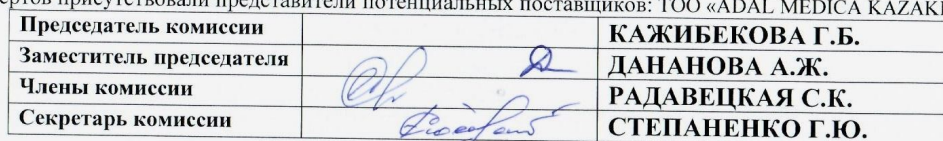 присутствовали представители потенциальных поставщиков: ТОО «ADAL MEDICA
Председатель комиссии КАЖИБЕКОВА Г.Б.
Заместитель председателя ДАНАНОВА А.Ж.
Члены комиссии РАДАВЕЦКАЯ С.К.
Секретарь комиссии СТЕПАНЕНКО Г.Ю.